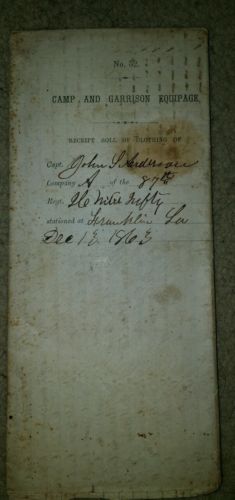 No. 52.
CAMP AND GARRISON EQUIPAGE.
RECEIPT ROLL OF CLOTHING OF
Capt. John S Anderson
Company A of the 87th
Regt.
stationed at Franklin La
Dec 13, 1863